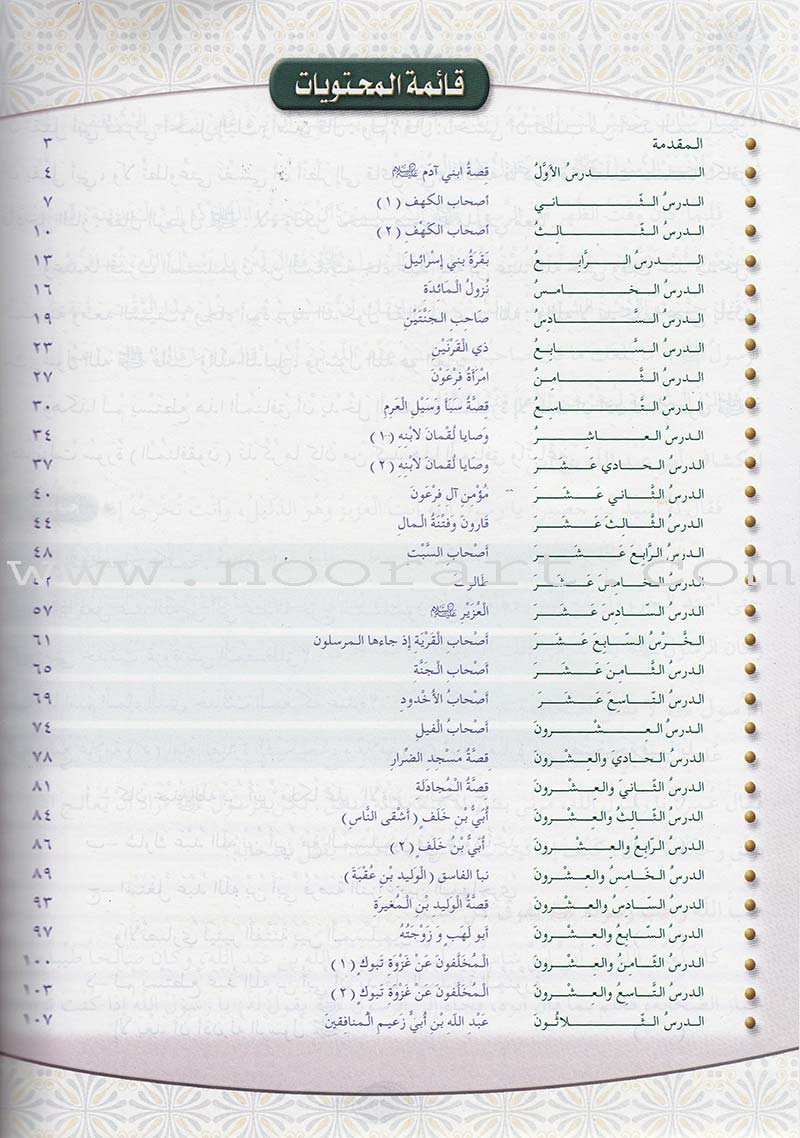 قائمة المحتويات
المقدمة ٣
الدرسُ الأوَّلُ قِصةُ ابني آدم عليه السلام ٤
الدرسُ الثَّاني أصحاب الكهف (١) ٧
الدرسُ الثَّالثُ أصحاب الكَهْفِ (٢) ١٠
الدرسُ الرَّابِعُ بَقَرَةُ بني إسْرائيل ١٣
الدرسُ الخَامسُ نُزولُ الْمَائدة ١٦
الدرسُ السَّادِسُ صَاحِب الجَنَّتَيْنِ ١٩
الدرسُ السَّابِعُ ذي القَرْنَيْنِ ٢٣
الدرسُ الثَّامنُ امْرَأةُ فِرْعَوْنَ ٢٧
الدرسُ التَّاسِعُ قِصَّةُ سَبَأ وَسَيْلِ العَرِمِ ٣٠
الدرسُ العَاشِرُ وَصايا لُقْمانَ لابْنِهِ (١) ٣٤
الدرسُ الحَادي عَشَرَ وَصايا لُقْمانَ لابْنِهِ (٢) ٣٧
الدرسُ الثَّاني عَشَرَ مُؤْمِن آلِ فِرْعَوْنَ ٤٠
الدرسُ الثَّالِثَ عَشَرَ قارونَ وَفِتْنَةُ المالِ ٤٤
الدرسُ الرَّابِعَ عَشَرَ أصْحابِ السَّبْت ٤٨
www.noorart.com
الدرسُ الخَامِسَ عَشَرَ طَالوت
الدرسُ السَّادِسَ عَشَرَ الْعُزَيْر عليه السلام ٥٧
الدرسُ السَّابِعَ عَشَرَ أصْحاب القَرْيَة إذ جاءها المرسلون ٦١
الدرسُ الثَّامنَ عَشَرَ أصْحاب الجَنَّةِ ٦٥
الدرسُ التَّاسِعَ عَشَرَ أصْحابُ الأُخْدودِ ٦٩
الدرسُ العِشْرونَ أصْحابُ الفيلِ ٧٤
الدرسُ الحَاديَ والعِشْرونَ قِصةُ مَسْجِدِ الضِّرار ٧٨
الدرسُ الثَّاني والعِشْرونَ قصةُ الْمُجادَلَة ٨١
الدرسُ الثَّالثُ والعِشْرونَ أُبَيُّ بْنِ خَلَفٍ (أشقى النَّاسِ) ٨٤
الدرسُ الرَّابِعُ والعِشْرونَ أُبَيُّ بْنُ خَلَف (٢) ٨٦
الدرسُ الخَامسُ والعِشْرونَ نبأ الفاسق (الْوَليدِ بْنِ عُقْبَة) ٨٩
الدرسُ السَّادسُ والعِشْرونَ قصةُ الْوَليدِ بْنِ الْمُغيرَةِ ٩٣
الدرسُ السَّابِعُ والعِشْرونَ أبو لَهَبٍ وَ زَوْجَتُهُ ٩٧
الدرسُ الثَّامِنُ والعِشْرونَ الْمُخَلَّفونَ عَنْ غَزْوَةِ تَبوكٍ (١) ١٠٠
الدرسُ التَّاسعُ والعِشْرونَ الْمُخَلَّفونَ عَنْ غَزْوَةِ تَبوكٍ (٢) ١٠٣
الدرسُ الثَّلاثُونَ عَبْدِ اللَهِ بْنِ أُبَيٍّ زَعيمِ الْمُنافِقينَ ١٠٧